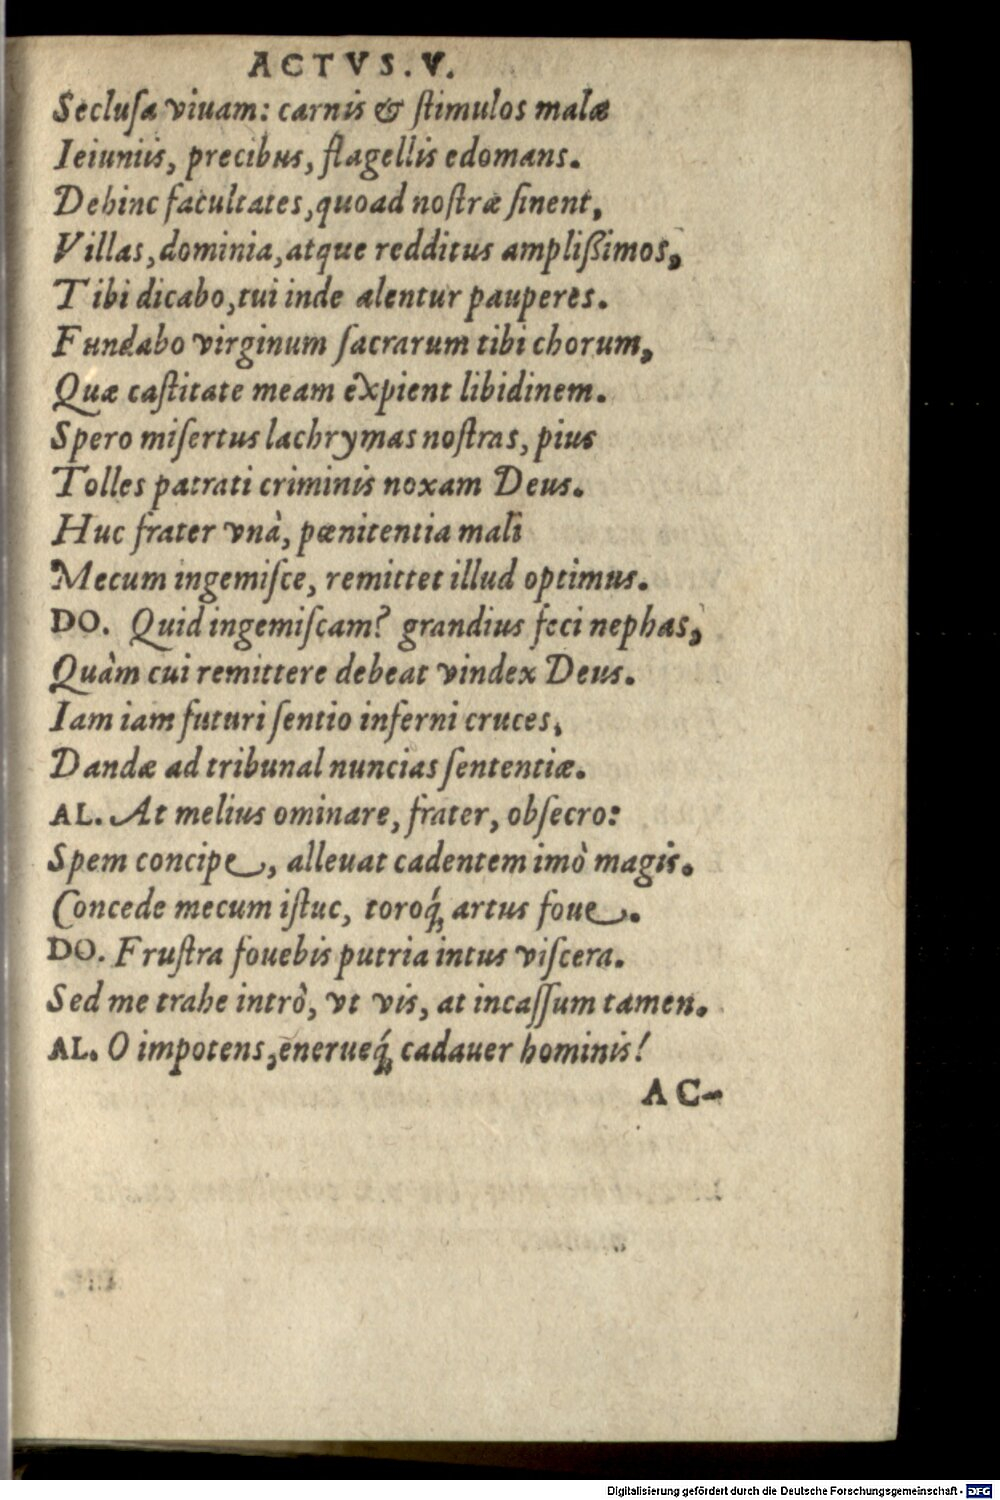 ACTVS. V.
Seclusa viuam: carnis & stimulos malæ
Ieiuniis, precibus, flagellis edomans.
Dehinc facultates, quoad nostræ sinent,
Villas, dominia, atque redditus amplißimos,
Tibi dicabo, tui inde alentur pauperes.
Fundabo virginum sacrarum tibi chorum,
Quæ castitate meam expient libidinem.
Spero misertus lachrymas nostras, pius
Tolles patrati criminis noxam Deus.
Huc frater vnà, pœnitentia mali
Mecum ingemisce, remittet illud optimus.
DO. Quid ingemiscam? grandius feci nephas,
Quàm cui remittere debeat vindex Deus.
Iam iam futuri sentio inferni cruces,
Dandæ ad tribunal nuncias sententiæ.
AL. At melius ominare, frater, obsecro:
Spem concipe, alleuat cadentem imò magis.
Concede mecum istuc, toroq́; artus foue.
DO. Frustra fouebis putria intus viscera.
Sed me trahe intrò, vt vis, at incassum tamen.
AL. O impotens, enerueq́; cadauer hominis!
AC-
Digitalisierung gefördert durch die Deutsche Forschungsgemeinschaft - DFG